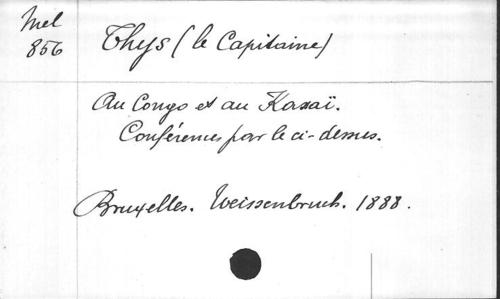 Mel
856
Thys (le Capitaine)
Au Congo et au Kasaï.
Conférences par le ci-dessus.
Bruxelles. Weissenbruch. 1888.